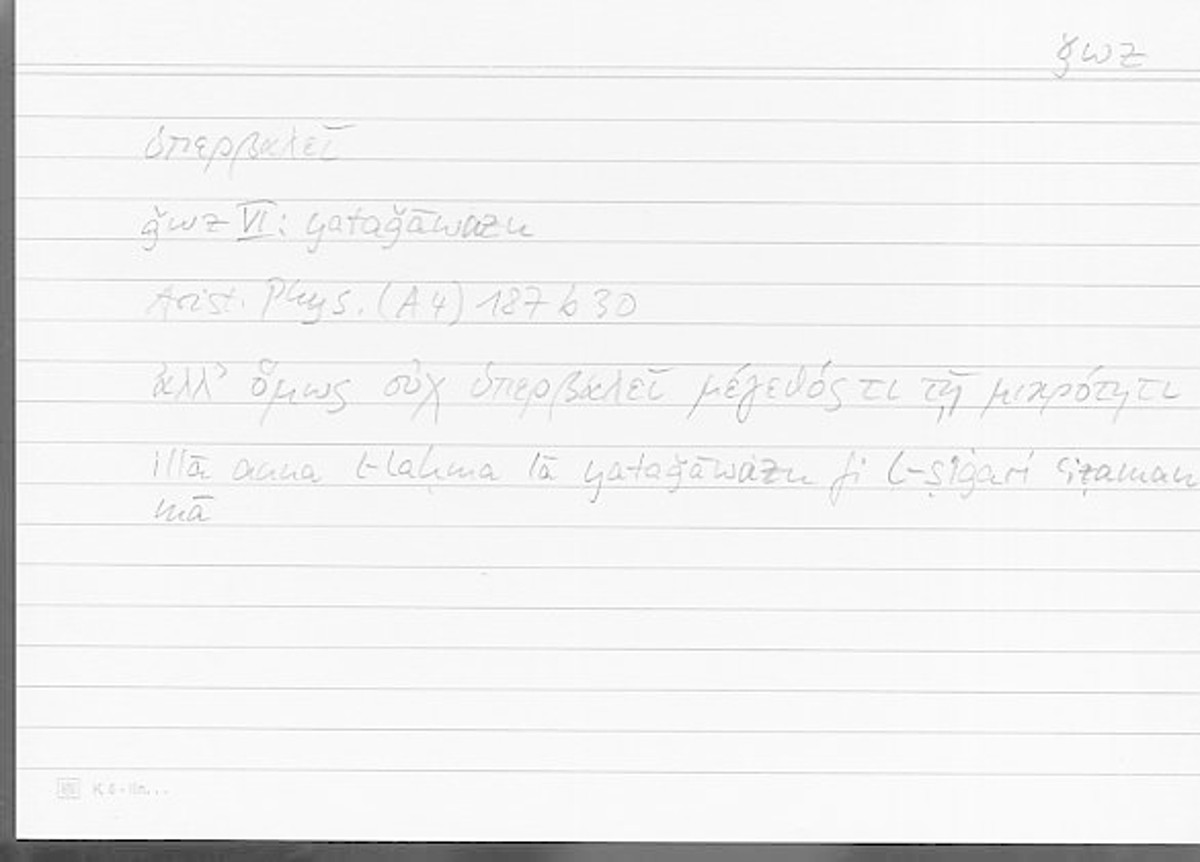 ǧwz
ὑπερβαλεῖ
ǧwz VI: yataǧāwazu
Arist. Phys. (A 4) 187 b 30
ἀλλ’ ὅμως οὐχ ὑπερβαλεῖ μέγεθός τι τῇ μικρότητι
illā anna l-laḥma lā yataǧāwazu fi l-ṣiġari ʿiẓaman
mā